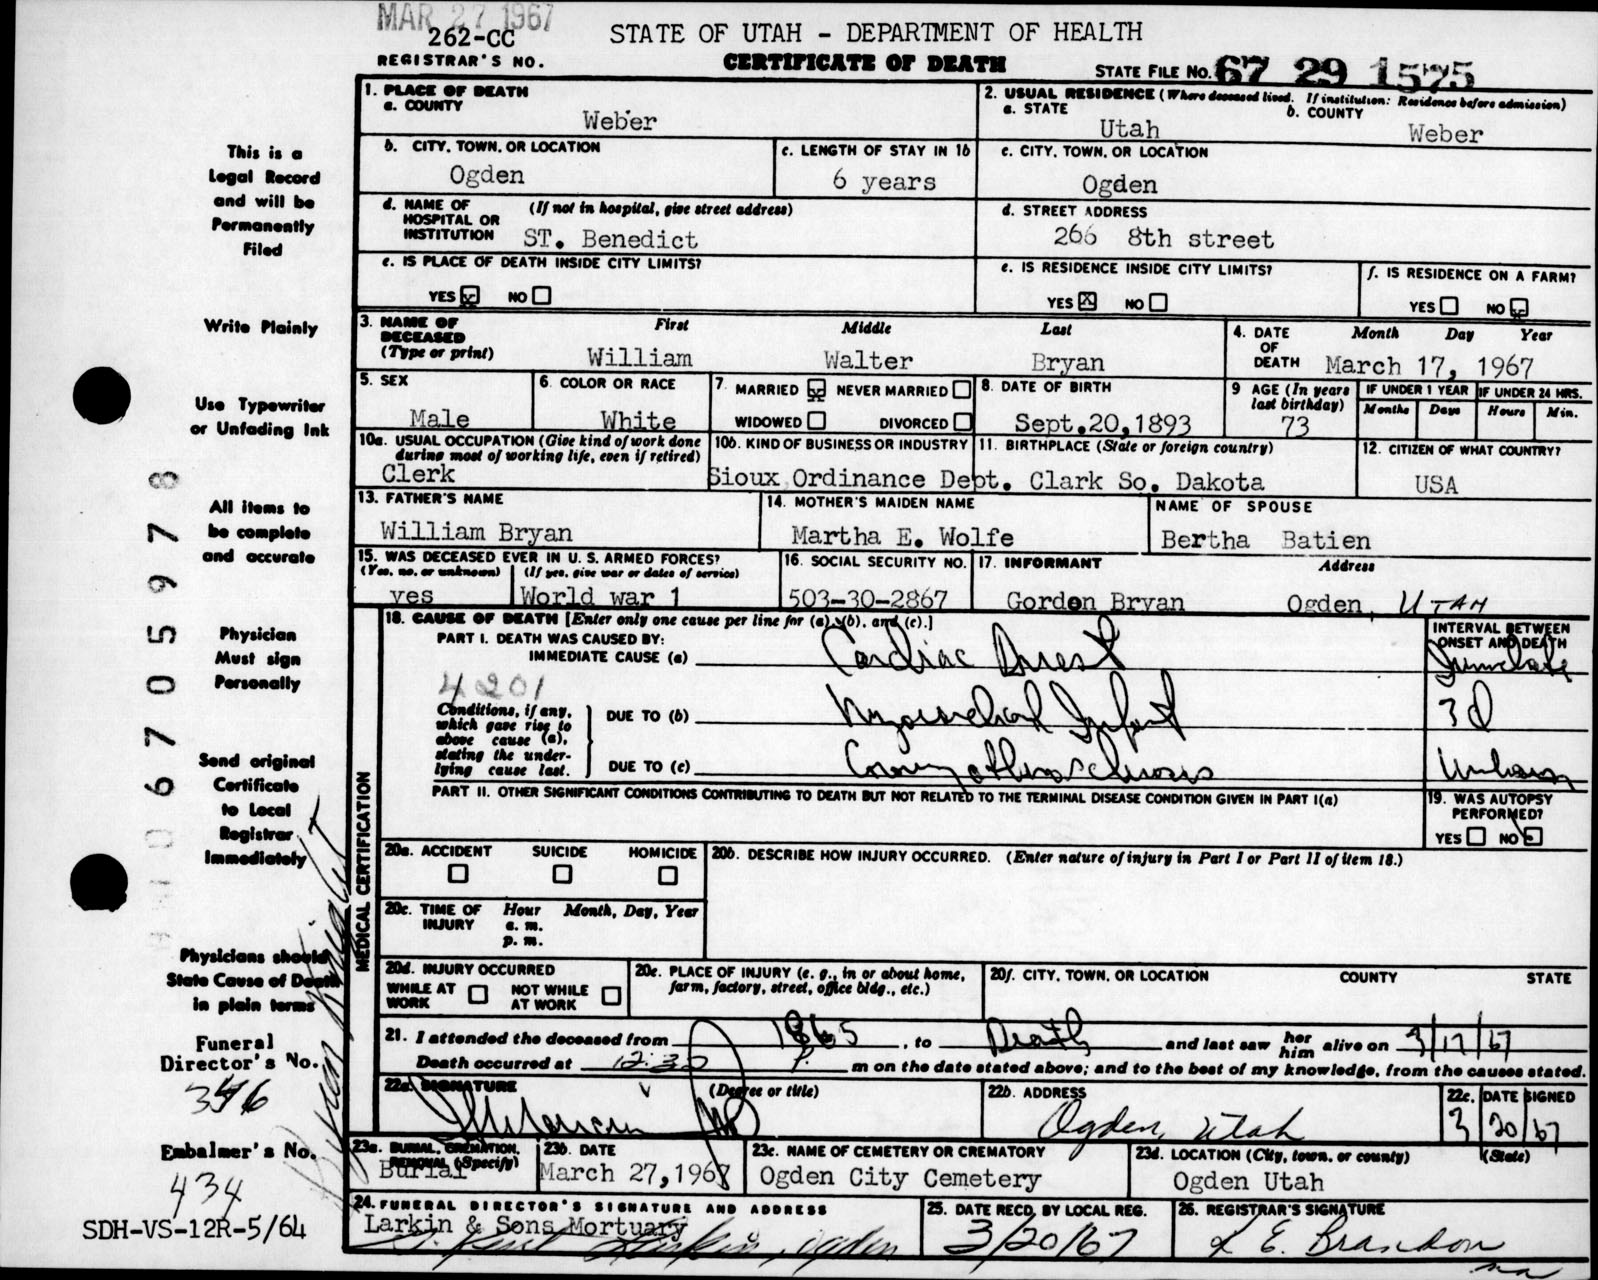 MAR 27 1967
262-CC
REGISTRAR'S NO.
STATE OF UTAH - DEPARTMENT OF HEALTH
CERTIFICATE OF DEATH
STATE FILE NO. 67 29 1575
1. PLACE OF DEATH
a. COUNTY
Weber
2. USUAL RESIDENCE (Where deceased lived. If institution: Residence before admission)
a. STATE
Utah
b. COUNTY
Weber
b. CITY, TOWN, OR LOCATION
Ogden
c. LENGTH OF STAY IN 1b
6 years
c. CITY, TOWN, OR LOCATION
Ogden
d. NAME OF HOSPITAL OR INSTITUTION
(If not in hospital, give street address)
ST. Benedict
d. STREET ADDRESS
266 8th street
e. IS PLACE OF DEATH INSIDE CITY LIMITS?
YES NO
e. IS RESIDENCE INSIDE CITY LIMITS?
YES X NO
f. IS RESIDENCE ON A FARM?
YES NO
3. NAME OF DECEASED
(Type or print)
First Middle Last
William Walter Bryan
4. DATE OF DEATH
Month Day Year
March 17, 1967
5. SEX
Male
6. COLOR OR RACE
White
7. MARRIED NEVER MARRIED
WIDOWED DIVORCED
8. DATE OF BIRTH
Sept.20,1893
9 AGE (In years last birthday)
73
IF UNDER 1 YEAR
Months Days
IF UNDER 24 HRS.
Hours Min.
10a. USUAL OCCUPATION (Give kind of work done
during most of working life, even if retired)
Clerk
10b. KIND OF BUSINESS OR INDUSTRY
Sioux Ordinance Dept.
11. BIRTHPLACE (State or foreign country)
Clark So. Dakota
12. CITIZEN OF WHAT COUNTRY?
USA
13. FATHER'S NAME
William Bryan
14. MOTHER'S MAIDEN NAME
Martha E. Wolfe
NAME OF SPOUSE
Bertha Batien
15. WAS DECEASED EVER IN U. S. ARMED FORCES?
(Yes, no, or unknown) (If yes, give war or dates of service)
yes World war 1
16. SOCIAL SECURITY NO.
503-30-2867
17. INFORMANT Address
Gordon Bryan Ogden, UTAH
MEDICAL CERTIFICATION
18. CAUSE OF DEATH [Enter only one cause per line for (a), (b), and (c).]
PART I. DEATH WAS CAUSED BY:
IMMEDIATE CAUSE (a) Cardiac Arrest
INTERVAL BETWEEN ONSET AND DEATH
Immediate
4201
Conditions, if any,
which gave rise to
above cause (a),
stating the under-
lying cause last.
DUE TO (b) Myocardial Infarct
3 d
DUE TO (c) Coronary atherosclerosis
Unknown
PART II. OTHER SIGNIFICANT CONDITIONS CONTRIBUTING TO DEATH BUT NOT RELATED TO THE TERMINAL DISEASE CONDITION GIVEN IN PART I(a)
19. WAS AUTOPSY PERFORMED?
YES NO
20a. ACCIDENT SUICIDE HOMICIDE
20b. DESCRIBE HOW INJURY OCCURRED. (Enter nature of injury in Part I or Part II of item 18.)
20c. TIME OF INJURY
Hour Month, Day, Year
a. m.
p. m.
20d. INJURY OCCURRED
WHILE AT WORK NOT WHILE AT WORK
20e. PLACE OF INJURY (e. g., in or about home,
farm, factory, street, office bldg., etc.)
20f. CITY, TOWN, OR LOCATION COUNTY STATE
21. I attended the deceased from 1965, to Death and last saw her him alive on 3/17/67
Death occurred at 12:30 P. m on the date stated above; and to the best of my knowledge, from the causes stated.
22a. SIGNATURE (Degree or title)
22b. ADDRESS
Ogden, Utah
22c. DATE SIGNED
3/20/67
23a. BURIAL, CREMATION, REMOVAL (Specify)
Burial
23b. DATE
March 27,1967
23c. NAME OF CEMETERY OR CREMATORY
Ogden City Cemetery
23d. LOCATION (City, town, or county) (State)
Ogden Utah
24. FUNERAL DIRECTOR'S SIGNATURE AND ADDRESS
Larkin & Sons Mortuary
Larkin, Ogden
25. DATE RECD. BY LOCAL REG.
3/20/67
26. REGISTRAR'S SIGNATURE
E. Brandon
This is a
Legal Record
and will be
Permanently
Filed
Write Plainly
Use Typewriter
or Unfading Ink
All items to
be complete
and accurate
Physician
Must sign
Personally
Send original
Certificate
to Local
Registrar
Immediately
Physicians should
State Cause of Death
in plain terms
Funeral
Director's No.
Embalmer's No.
434
SDH-VS-12R-5/64